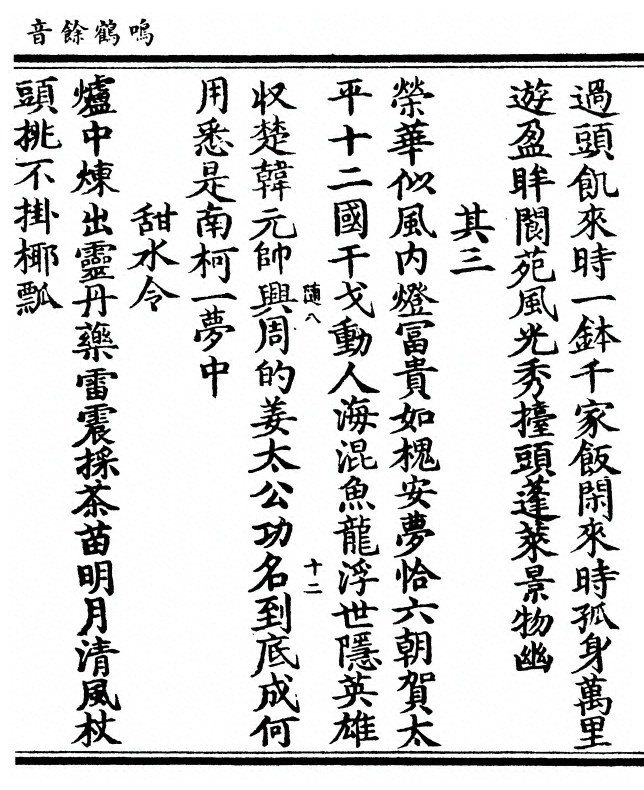 鳴鶴餘音
過頭飢來時一鉢千家飯閑來時孤身萬里
遊盈眸閬苑風光秀擡頭蓬萊景物幽
其三
榮華似風內燈冨貴如槐安夢恰六朝賀太
平十二國干戈動人海混魚龍浮世隱英雄
隨八
十二
収楚韓元帥興周的姜太公功名到底成何
用悉是南柯一夢中
甜水令
爐中煉出靈丹藥雷震採茶苗明月清風杖
頭挑不掛椰瓢